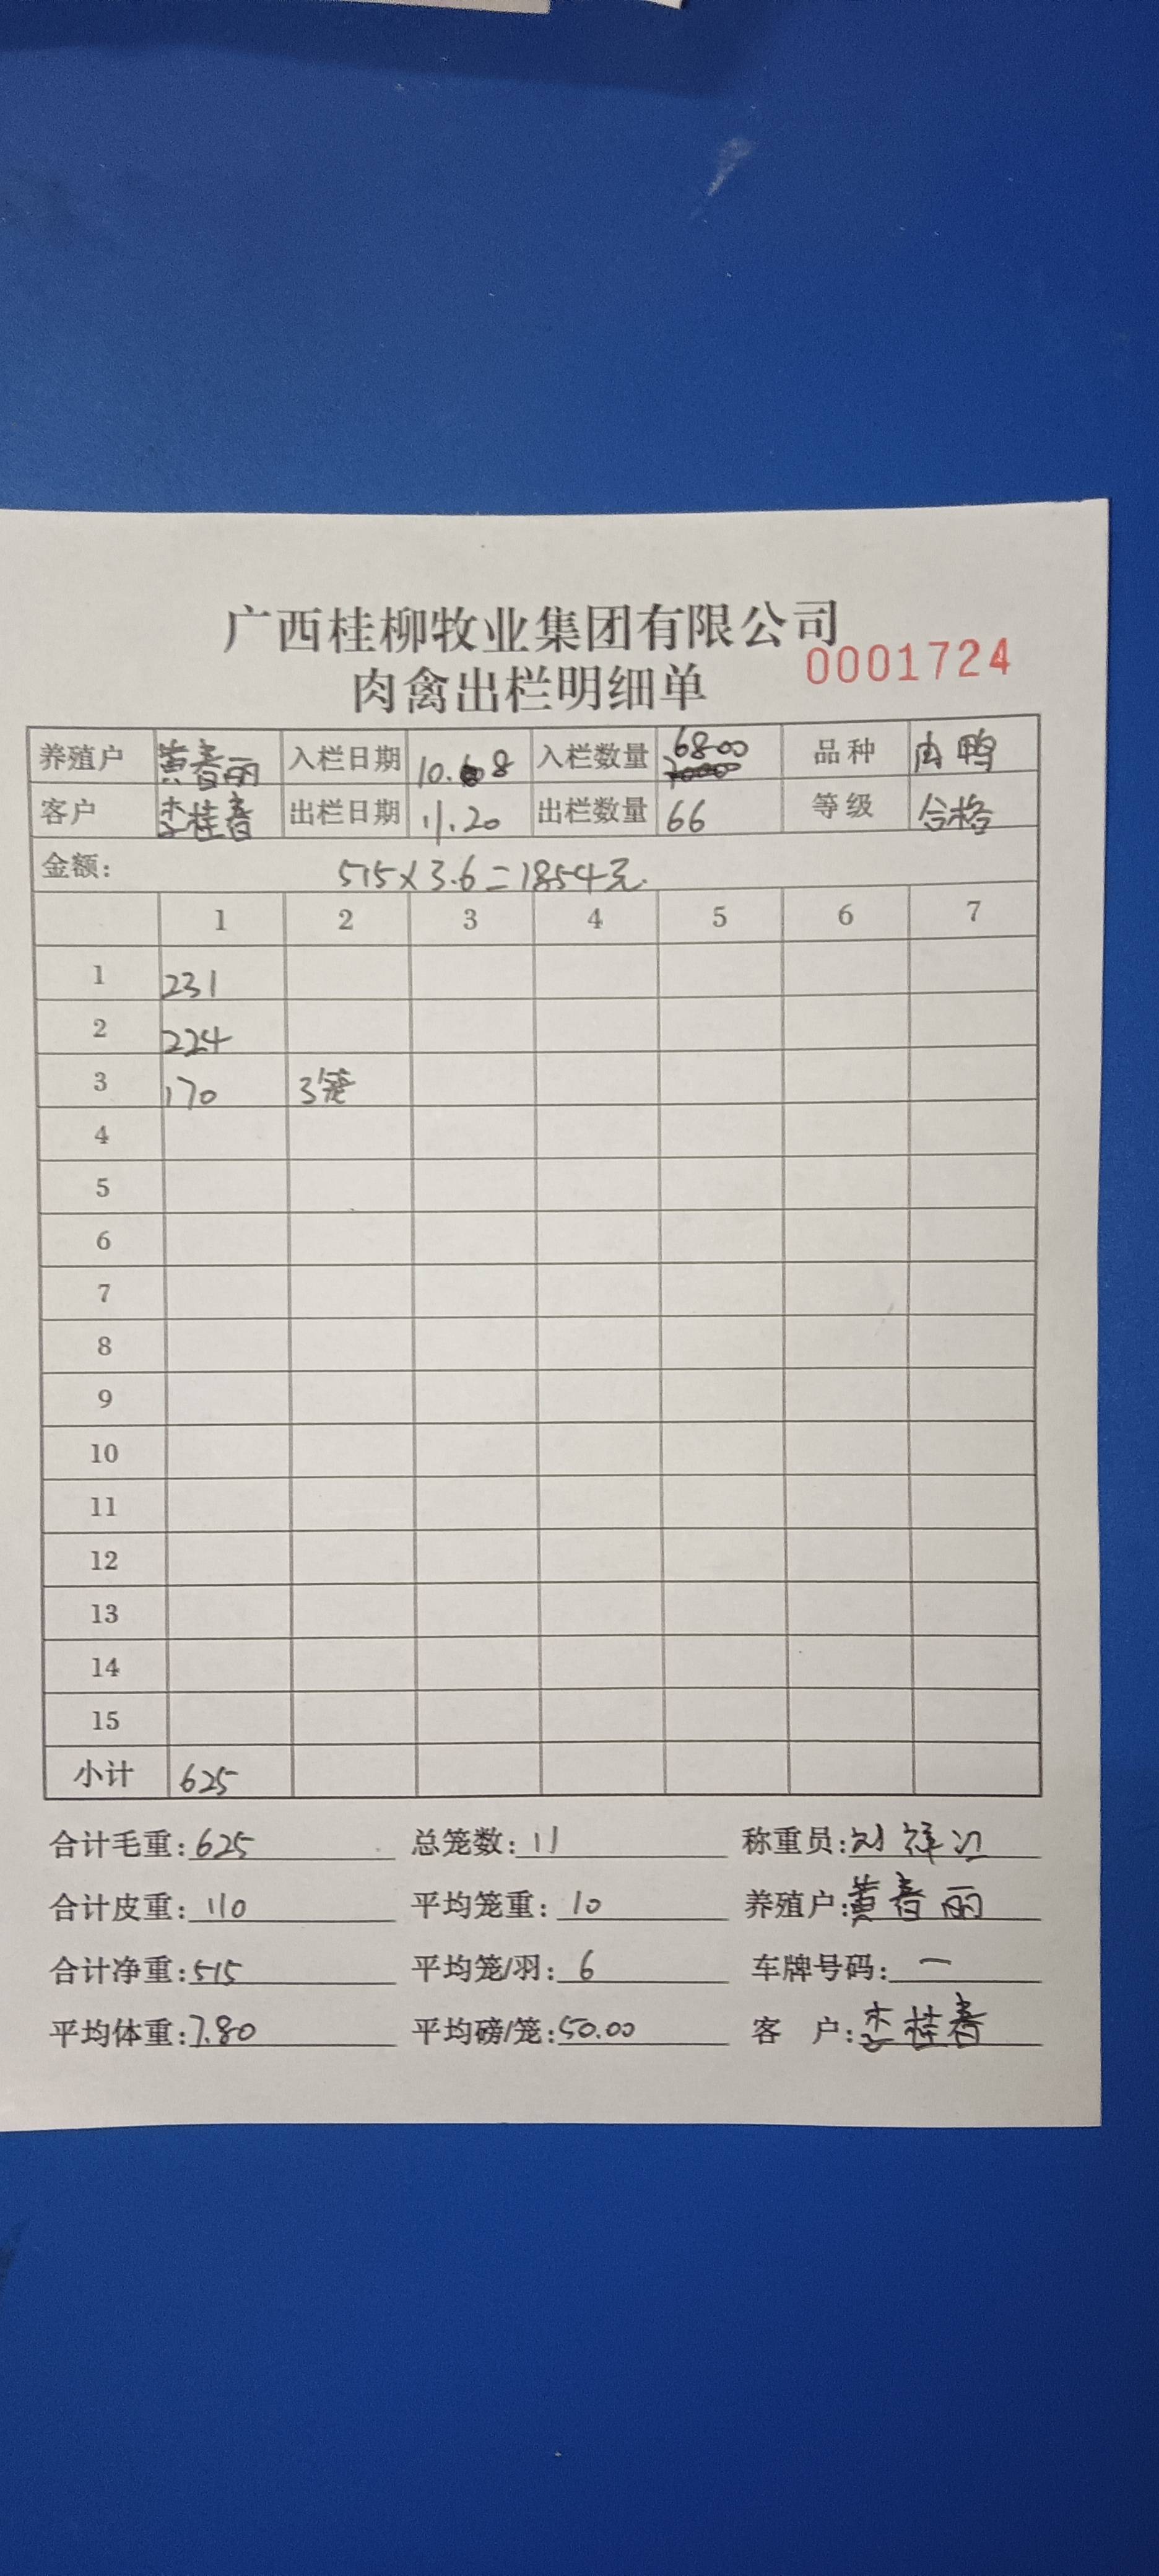 广西桂柳牧业集团有限公司
0001724
肉禽出栏明细单
养殖户 黄春丽 入栏日期 10.8 入栏数量 6800 品种 肉鸭
客户 李桂春 出栏日期 11.20 出栏数量 66 等级 合格
金额: 515×3.6=1854元.
1 2 3 4 5 6 7
1 231
2 224
3 170 3笼
4
5
6
7
8
9
10
11
12
13
14
15
小计 625
合计毛重: 625 总笼数: 11 称重员: 刘祥江
合计皮重: 110 平均笼重: 10 养殖户: 黄春丽
合计净重: 515 平均笼/羽: 6 车牌号码: 一
平均体重: 7.80 平均磅/笼: 50.00 客 户: 李桂春